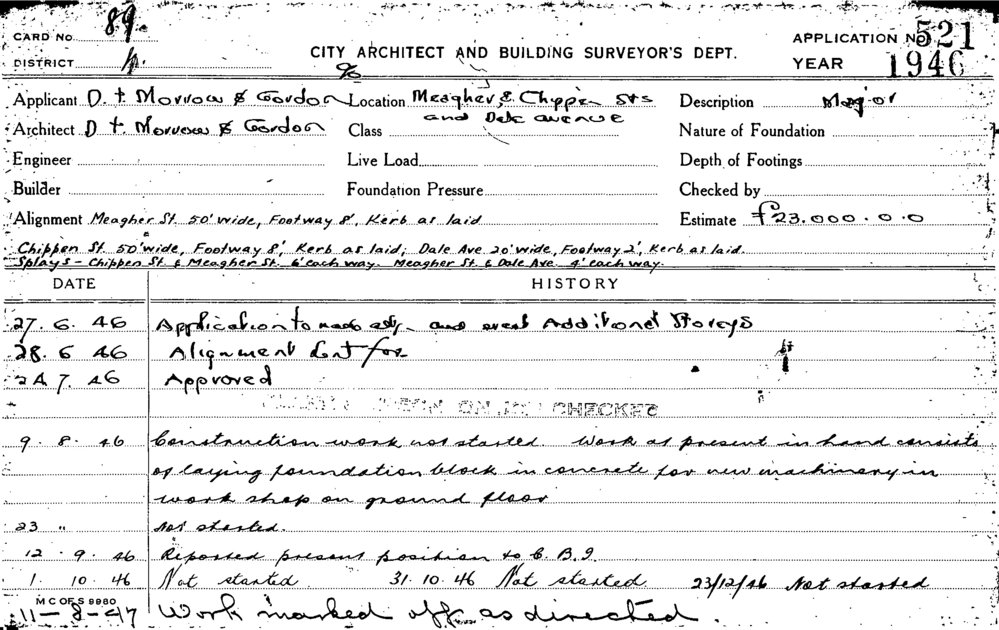 CARD No. 89
APPLICATION No 521
CITY ARCHITECT AND BUILDING SURVEYOR'S DEPT.
DISTRICT
YEAR 1946
Applicant D. T. Morrow & Gordon Location Meagher & Chippen Sts Description Major
and Dale avenue
Architect D T Morrow & Gordon Class Nature of Foundation
Engineer Live Load Depth of Footings
Builder Foundation Pressure Checked by
Alignment Meagher St. 50' wide, Footway 8', Kerb as laid Estimate £23.000.0.0
Chippen St. 50' wide, Footway 8', Kerb as laid; Dale Ave 20' wide, Footway 2', Kerb as laid.
Splays - Chippen St. & Meagher St. 6' each way. Meagher St. & Dale Ave. 4' each way.
DATE HISTORY
27. 6. 46 Application to and erect Additional Storeys
28. 6 46 Alignment for
24. 7. 46 Approved
ON JOB CHECKED
9. 8. 46 Construction work not started Work at present in hand consists
of laying foundation block in concrete for new machinery in
work shop on ground floor
23 " Not started.
12. 9. 46 Reported present position to C. B. I.
1. 10. 46 Not started. 31. 10. 46 Not started 23/12/46 Not started
M C OF S 9980
11-8-47 Work marked off as directed.